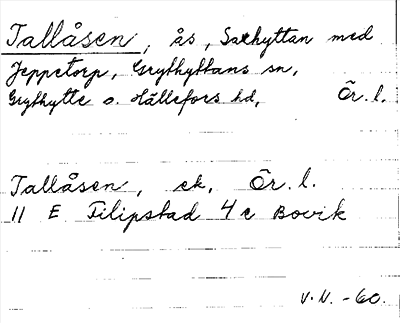 Tallåsen, ås, Saxhyttan med
Jeppetorp, Grythyttans sn,
Grythytte o. Hällefors hd, Ör. l.
Tallåsen, ek, Ör. l.
11 E Filipstad 4 c Bovik
V.N. -60.